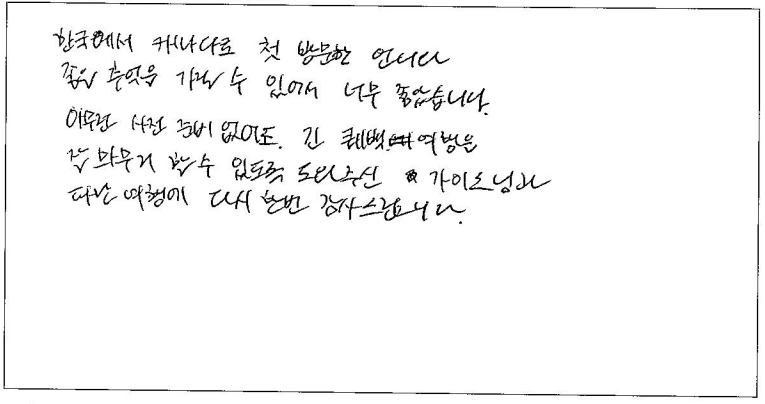 한국에서 캐나다로 첫 방문한 언니와
좋은 추억을 가질 수 있어서 너무 좋았습니다.
아무런 사전 준비 없어도. 긴 퀘백 여행을
잘 마무리 할 수 있도록 도와주신 가이드님과
파란 여행에 다시 한번 감사드립니다.